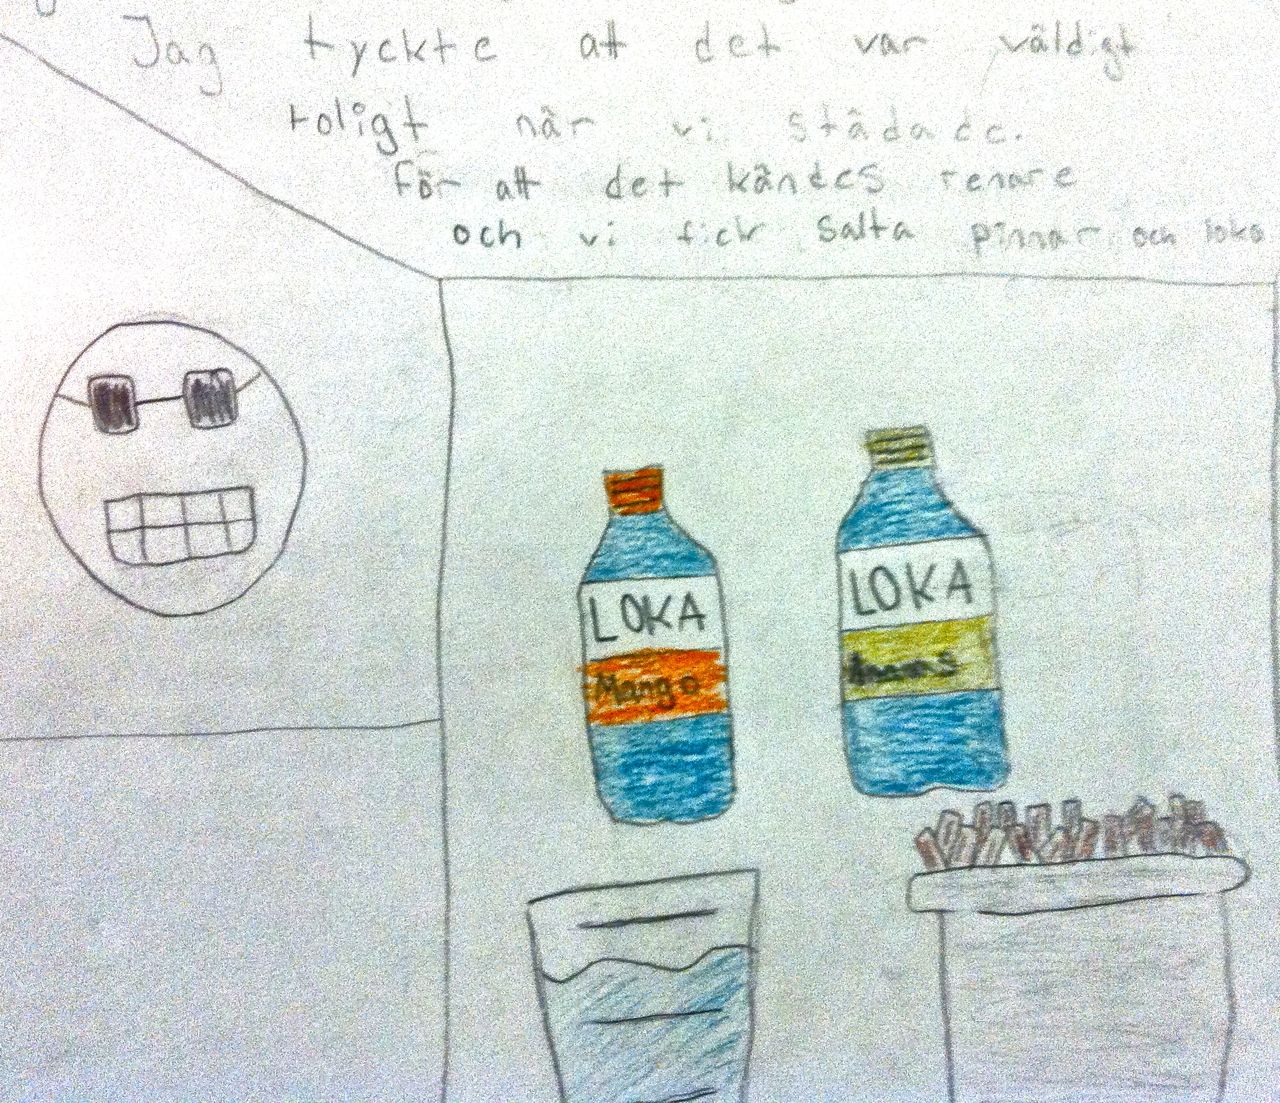 Jag tyckte att det var väldigt
roligt när vi städade.
För att det kändes renare
och vi fick salta pinnar och loka
LOKA
Mango
LOKA
Ananas